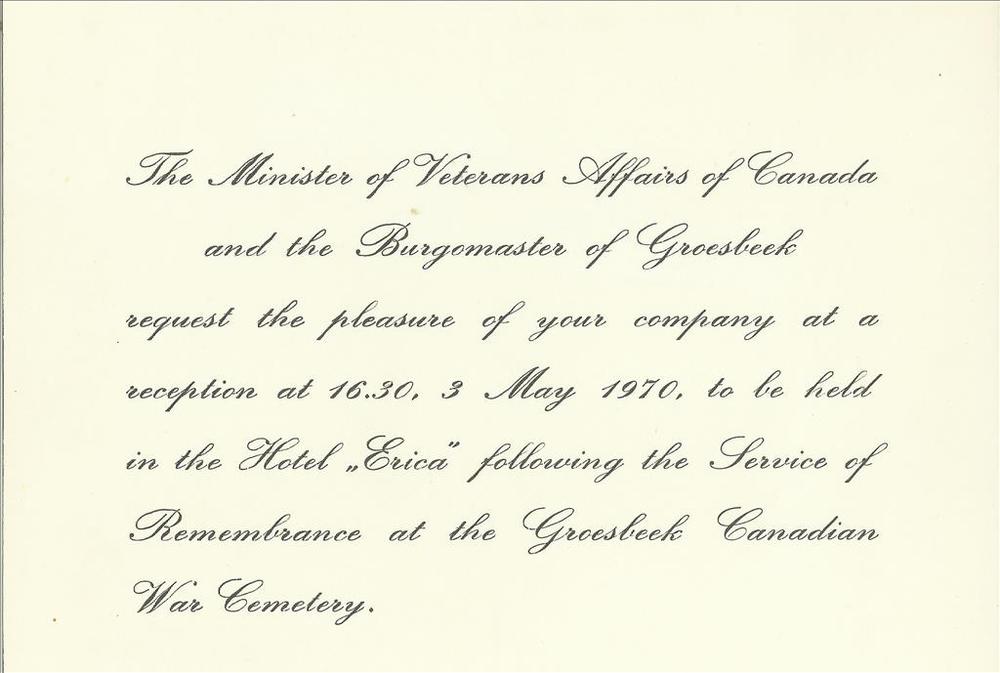 The Minister of Veterans Affairs of Canada
and the Burgomaster of Groesbeek
request the pleasure of your company at a
reception at 16.30, 3 May 1970, to be held
in the Hotel „Erica” following the Service of
Remembrance at the Groesbeek Canadian
War Cemetery.